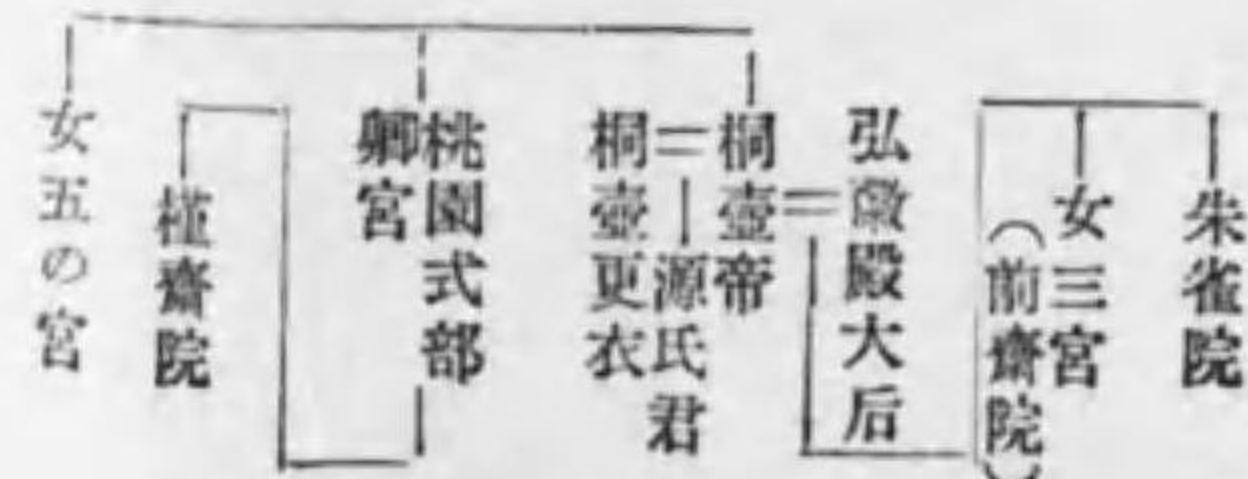 朱雀院
女三宮
（前齋院）
弘徽殿大后
桐壺帝
源氏君
桐壺更衣
桃園式部
卿宮
槿齋院
女五の宮